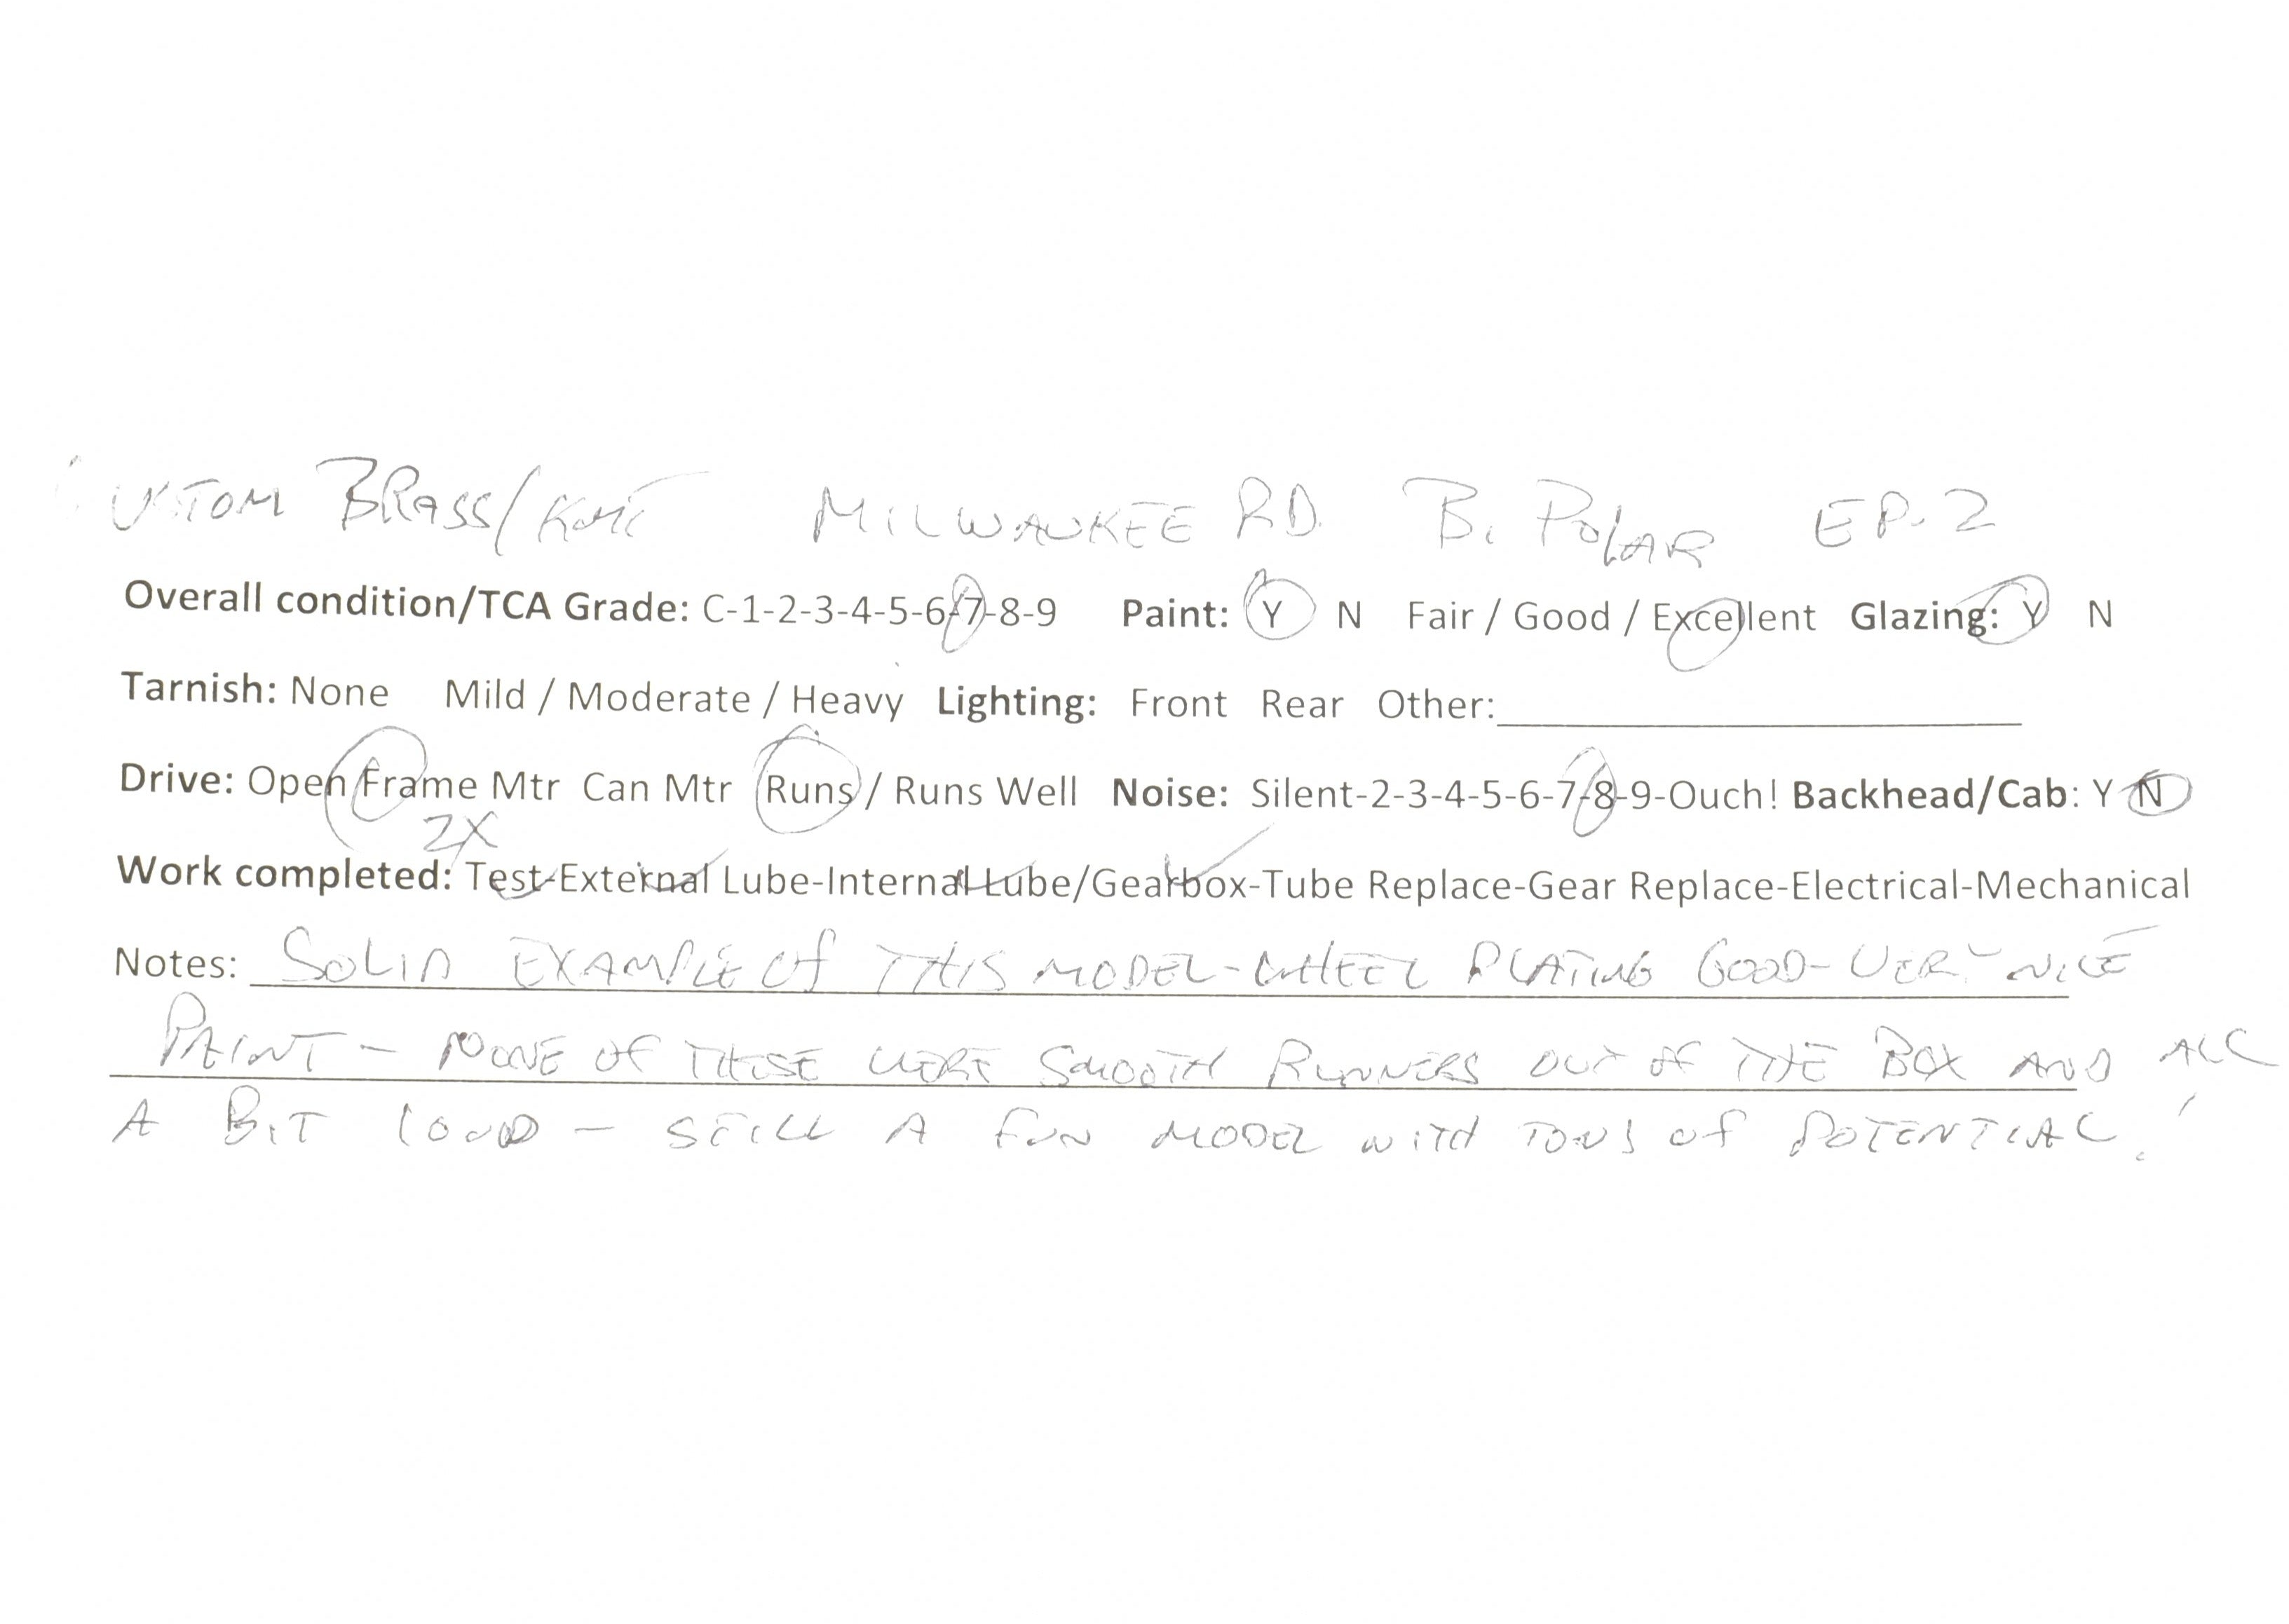 CUSTOM BRASS/KMT MILWAUKEE RD. Bi POLAR EP-2
Overall condition/TCA Grade: C-1-2-3-4-5-6-7-8-9 Paint: Y N Fair / Good / Excellent Glazing: Y N
Tarnish: None Mild / Moderate / Heavy Lighting: Front Rear Other:
Drive: Open Frame Mtr Can Mtr Runs / Runs Well Noise: Silent-2-3-4-5-6-7-8-9-Ouch! Backhead/Cab: Y N
2X
Work completed: Test-External Lube-Internal Lube/Gearbox-Tube Replace-Gear Replace-Electrical-Mechanical
Notes: SOLID EXAMPLE OF THIS MODEL-WHEEL PLATING GOOD-VERY NICE
PAINT - NONE OF THESE WERE SMOOTH RUNNERS OUT OF THE BOX AND ALL
A BIT LOUD - STILL A FUN MODEL WITH TONS OF POTENTIAL!